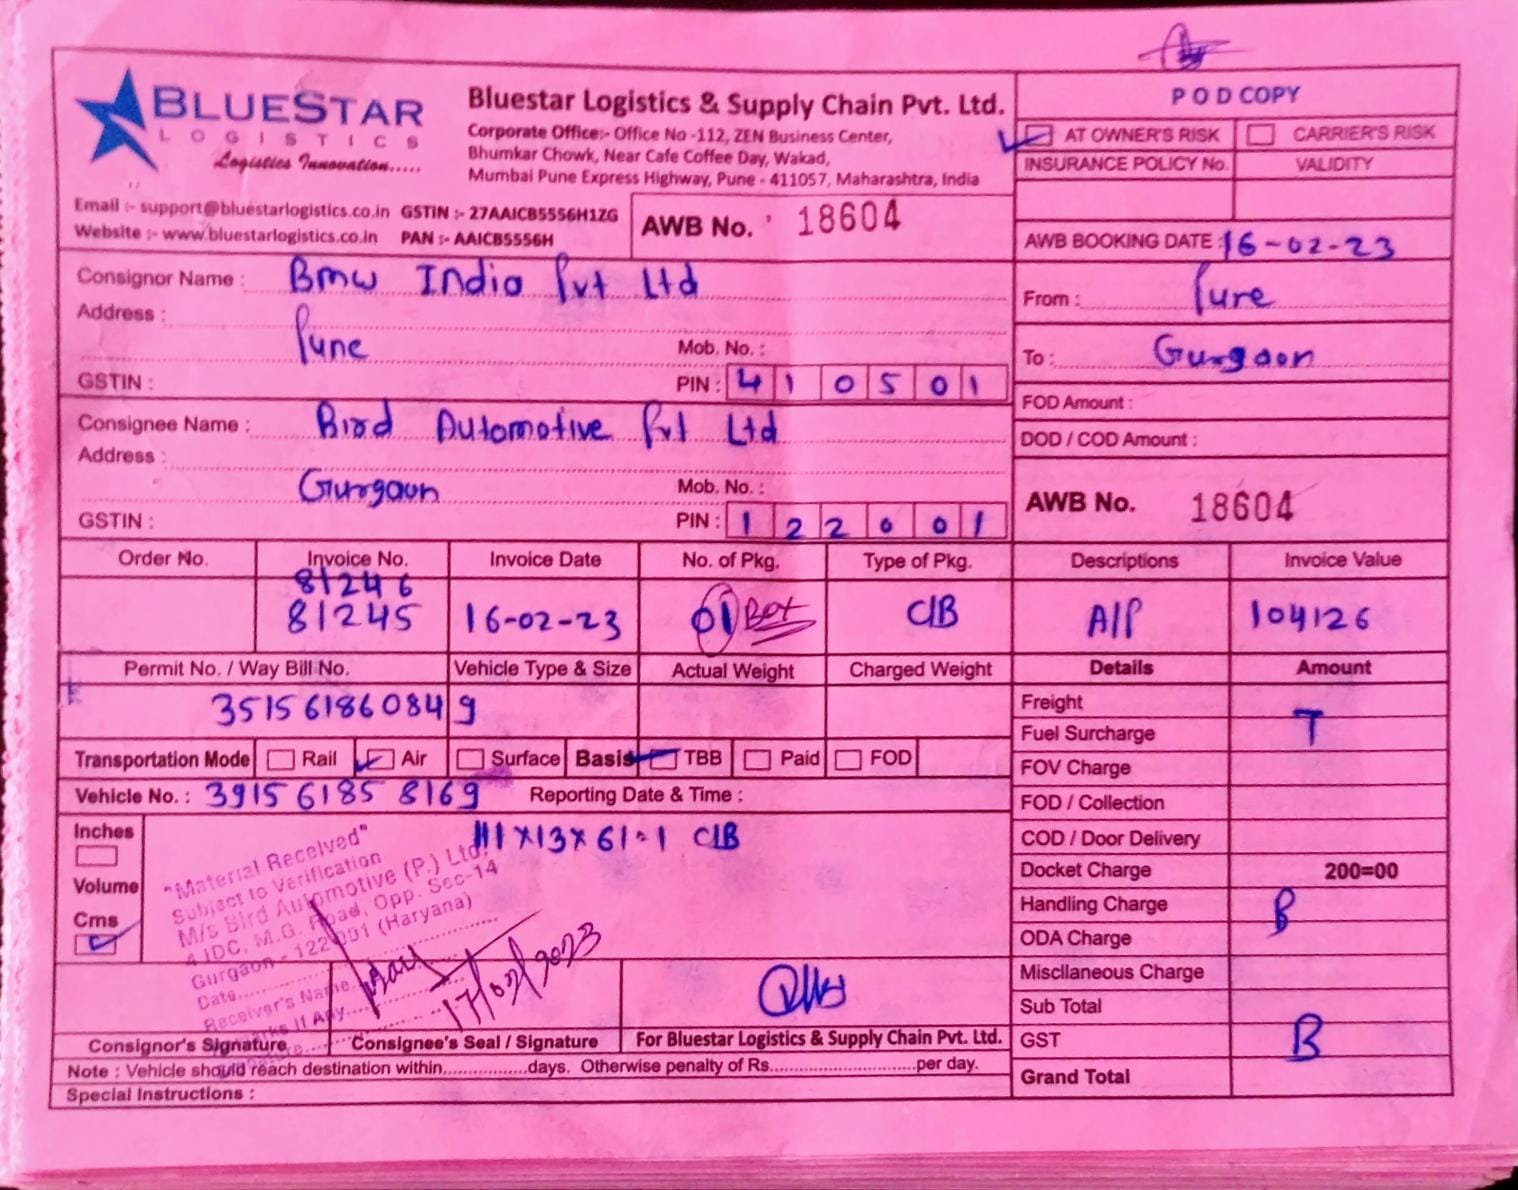 BLUESTAR
LOGISTICS
Logistics Innovation.....
Bluestar Logistics & Supply Chain Pvt. Ltd.
Corporate Office:- Office No -112, ZEN Business Center,
Bhumkar Chowk, Near Cafe Coffee Day, Wakad,
Mumbai Pune Express Highway, Pune - 411057, Maharashtra, India
Email :- support@bluestarlogistics.co.in GSTIN :- 27AAICB5556H1ZG
Website :- www.bluestarlogistics.co.in PAN :- AAICB5556H
AWB No. 18604
POD COPY
AT OWNER'S RISK CARRIER'S RISK
INSURANCE POLICY No. VALIDITY
AWB BOOKING DATE : 16-02-23
From : Pune
To : Gurgaon
FOD Amount :
DOD / COD Amount :
AWB No. 18604
Consignor Name : Bmw India Pvt Ltd
Address :
Pune Mob. No. :
GSTIN : PIN : 410501
Consignee Name : Bird Automotive Pvt Ltd
Address :
Gurgaon Mob. No. :
GSTIN : PIN : 122001
Order No. Invoice No. Invoice Date No. of Pkg. Type of Pkg. Descriptions Invoice Value
81246
81245 16-02-23 01 Box C/B A/P 104126
Permit No. / Way Bill No. Vehicle Type & Size Actual Weight Charged Weight Details Amount
351561860849
Freight
Fuel Surcharge T
FOV Charge
FOD / Collection
COD / Door Delivery
Docket Charge 200=00
Handling Charge B
ODA Charge
Miscllaneous Charge
Sub Total
GST B
Grand Total
Transportation Mode Rail Air Surface Basis TBB Paid FOD
Vehicle No. : 391561858169 Reporting Date & Time :
Inches
Volume
Cms
111x13x61-1 C/B
"Material Received"
Subject to Verification
M/s Bird Automotive (P.) Ltd.
4 IDC, M.G. Road, Opp. Sec-14
Gurgaon - 122001 (Haryana)
Date..........
Receiver's Name..........
If Any..........
17/02/2023
Consignor's Signature Consignee's Seal / Signature For Bluestar Logistics & Supply Chain Pvt. Ltd.
Note : Vehicle should reach destination within................days. Otherwise penalty of Rs............................per day.
Special Instructions :